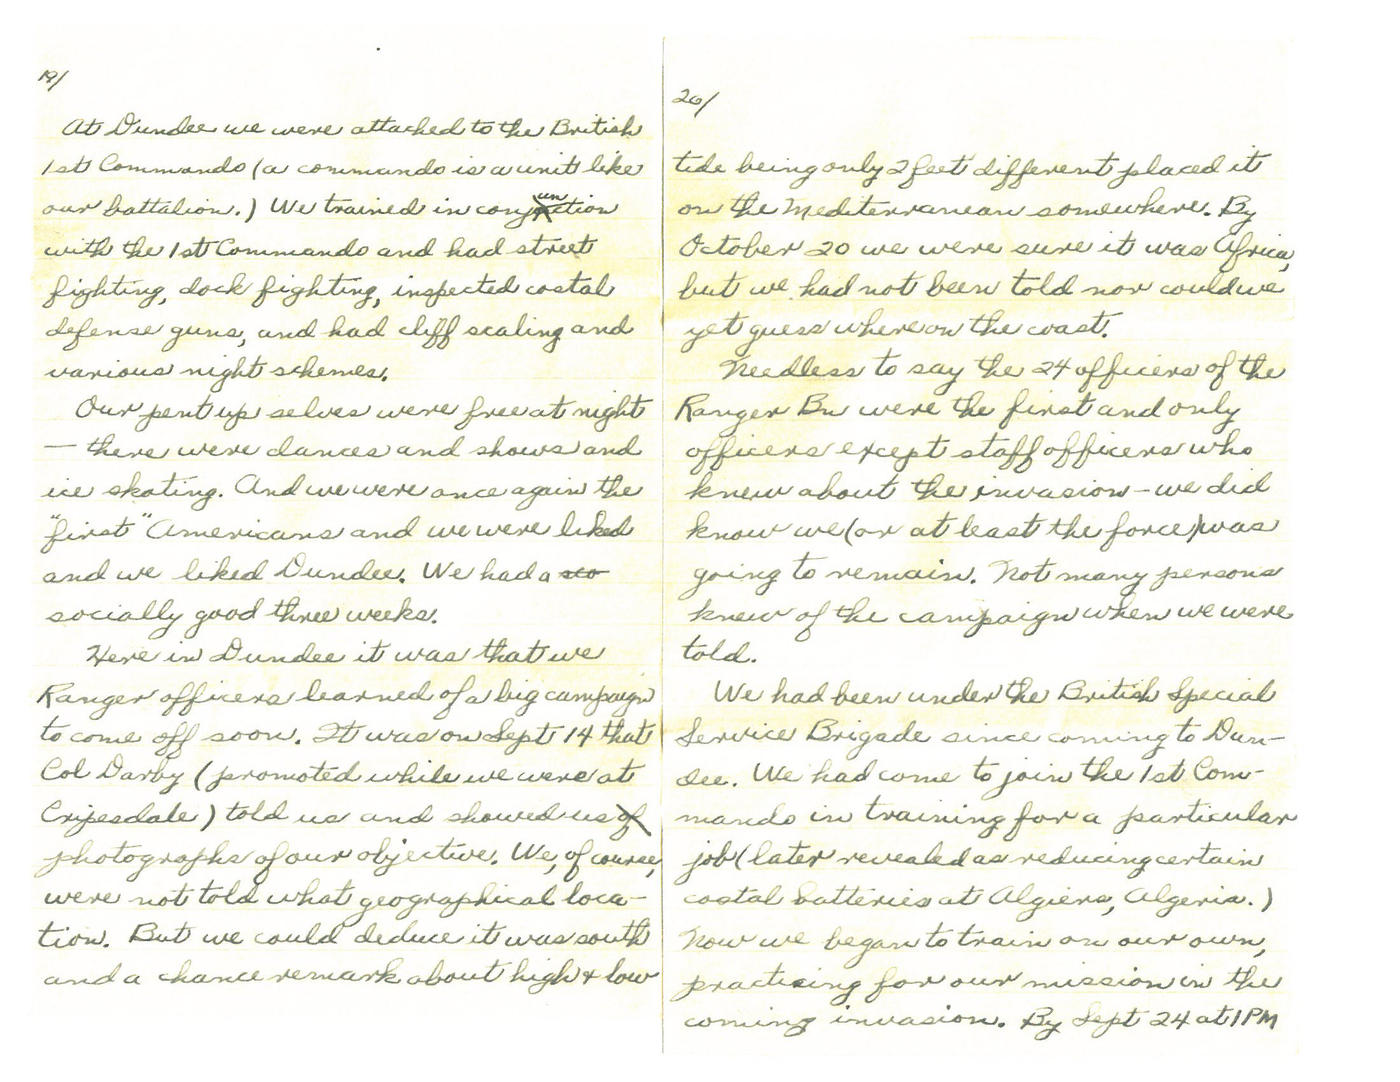 19/
At Dundee we were attached to the British
1st Commando (a commando is a unit like
our battalion.) We trained in conjunction
with the 1st Commando and had street
fighting, dock fighting, inspected costal
defense guns, and had cliff scaling and
various night schemes.
Our pent up selves were free at night
— there were dances and shows and
ice skating. And we were once again the
"first" Americans and we were liked
and we liked Dundee. We had a so
socially good three weeks.
Here in Dundee it was that we
Ranger officers learned of a big campaign
to come off soon. It was on Sept 14 that
Col Darby (promoted while we were at
Cripesdale) told us and showed us of
photographs of our objective. We, of course,
were not told what geographical loca-
tion. But we could deduce it was south
and a chance remark about high & low
20/
tide being only 2 feet different placed it
on the Mediterranean somewhere. By
October 20 we were sure it was Africa,
but we had not been told nor could we
yet guess where on the coast.
Needless to say the 24 officers of the
Ranger Bn were the first and only
officers except staff officers who
knew about the invasion — we did
know we (or at least the force) was
going to remain. Not many persons
knew of the campaign when we were
told.
We had been under the British Special
Service Brigade since coming to Dun-
dee. We had come to join the 1st Com-
mando in training for a particular
job (later revealed as reducing certain
costal batteries at Algiers, Algeria.)
Now we began to train on our own,
practicing for our mission in the
coming invasion. By Sept 24 at 1 PM